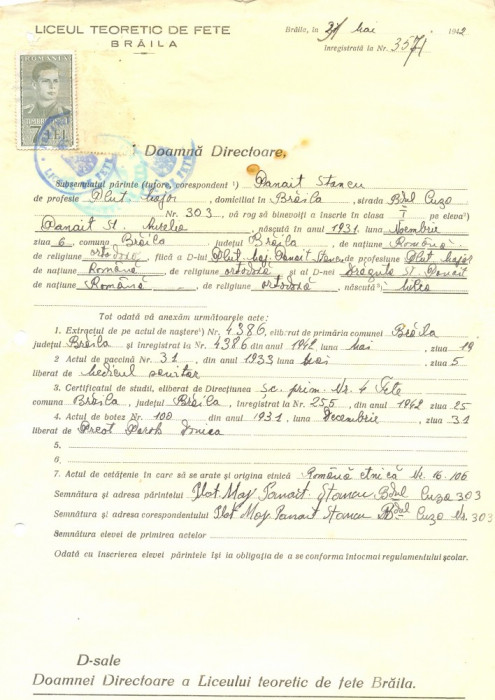 LICEUL TEORETIC DE FETE
BRĂILA
Brăila, în 27 Mai 1942
înregistrată la Nr. 3571
ROMANIA
7 LEI
Doamnă Directoare,
Subsemnatul părinte (tutore, corespondent ¹) Panait Stancu
de profesie Plut. Major, domiciliat în Brăila, strada Bdul Cuza
Nr. 303, vă rog să binevoiți a înscrie în clasa I pe eleva²)
Panait St. Aurelia, născută în anul 1931. luna Noembrie
ziua 6 comuna Brăila, județul Brăila, de națiune Română
de religiune ortodoxă, fiică a D-lui Plut. Maj. Panait Stancu de profesiune Plut. Major
de națiune Română, de religiune ortodoxă și al D-nei St. Panait
de națiune Română, de religiune ortodoxă, născută³)
Tot odată vă anexăm următoarele acte:
1. Extractul de pe actul de naștere⁴) Nr. 4386, eliberat de primăria comunei Brăila
județul Brăila și înregistrat la Nr. 4386 din anul 1942 luna Mai, ziua 19
2 Actul de vaccină Nr. 31, din anul 1933 luna Mai, ziua 5
liberat de Medicul sanitar
3. Certificatul de studii, eliberat de Direcțiunea Șc. prim. Nr. 4 Fete
comuna Brăila, județul Brăila, înregistrat la Nr. 255 din anul 1942 ziua 25
4. Actul de botez Nr. 100 din anul 1931, luna Decembrie, ziua 31
liberat de Preot Paroh Ionica
5.
6.
7. Actul de cetățenie în care să se arate și origina etnică Română etnică Nr. 16.106
Semnătura și adresa părintelui Plot. Maj. Panait Stancu. Bdul Cuza 303
Semnătura și adresa corespondentului Plot. Maj. Panait Stancu Bdul Cuza Nr. 303
Semnătura elevei de primirea actelor
Odată cu înscrierea elevei părintele își ia obligația de a se conforma întocmai regulamentului școlar.
D-sale
Doamnei Directoare a Liceului teoretic de fete Brăila.